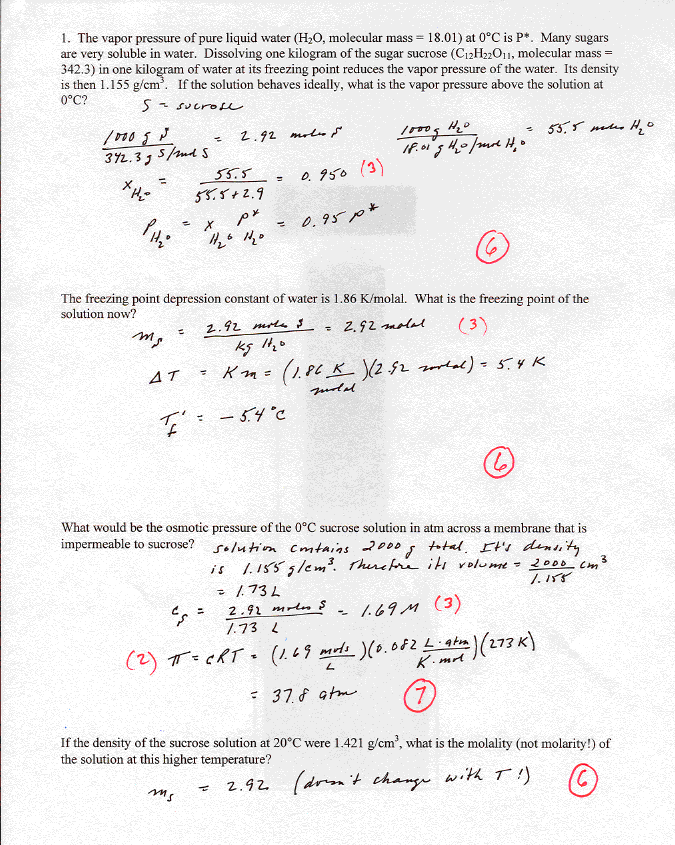 1. The vapor pressure of pure liquid water (H₂O, molecular mass = 18.01) at 0°C is P*. Many sugars
are very soluble in water. Dissolving one kilogram of the sugar sucrose (C₁₂H₂₂O₁₁, molecular mass =
342.3) in one kilogram of water at its freezing point reduces the vapor pressure of the water. Its density
is then 1.155 g/cm³. If the solution behaves ideally, what is the vapor pressure above the solution at
0°C?
S = sucrose
1000 g S / 342.3 g S/mol S = 2.92 moles S
1000 g H₂O / 18.01 g H₂O/mol H₂O = 55.5 moles H₂O
X_H₂O = 55.5 / 55.5 + 2.9 = 0.950 (3)
P_H₂O = X_H₂O P*_H₂O = 0.95 P*
6
The freezing point depression constant of water is 1.86 K/molal. What is the freezing point of the
solution now?
m_s = 2.92 moles S / kg H₂O = 2.92 molal (3)
ΔT = K m = (1.86 K / molal)(2.92 molal) = 5.4 K
T_f' = - 5.4°C
6
What would be the osmotic pressure of the 0°C sucrose solution in atm across a membrane that is
impermeable to sucrose? solution contains 2000 g total. It's density
is 1.155 g/cm³. Therefore its volume = 2000 / 1.155 cm³
= 1.73 L
c_s = 2.92 moles S / 1.73 L = 1.69 M (3)
(2) π = cRT = (1.69 mols / L)(0.082 L·atm / K·mol)(273 K)
= 37.8 atm
7
If the density of the sucrose solution at 20°C were 1.421 g/cm³, what is the molality (not molarity!) of
the solution at this higher temperature?
m_s = 2.92 (doesn't change with T!)
6